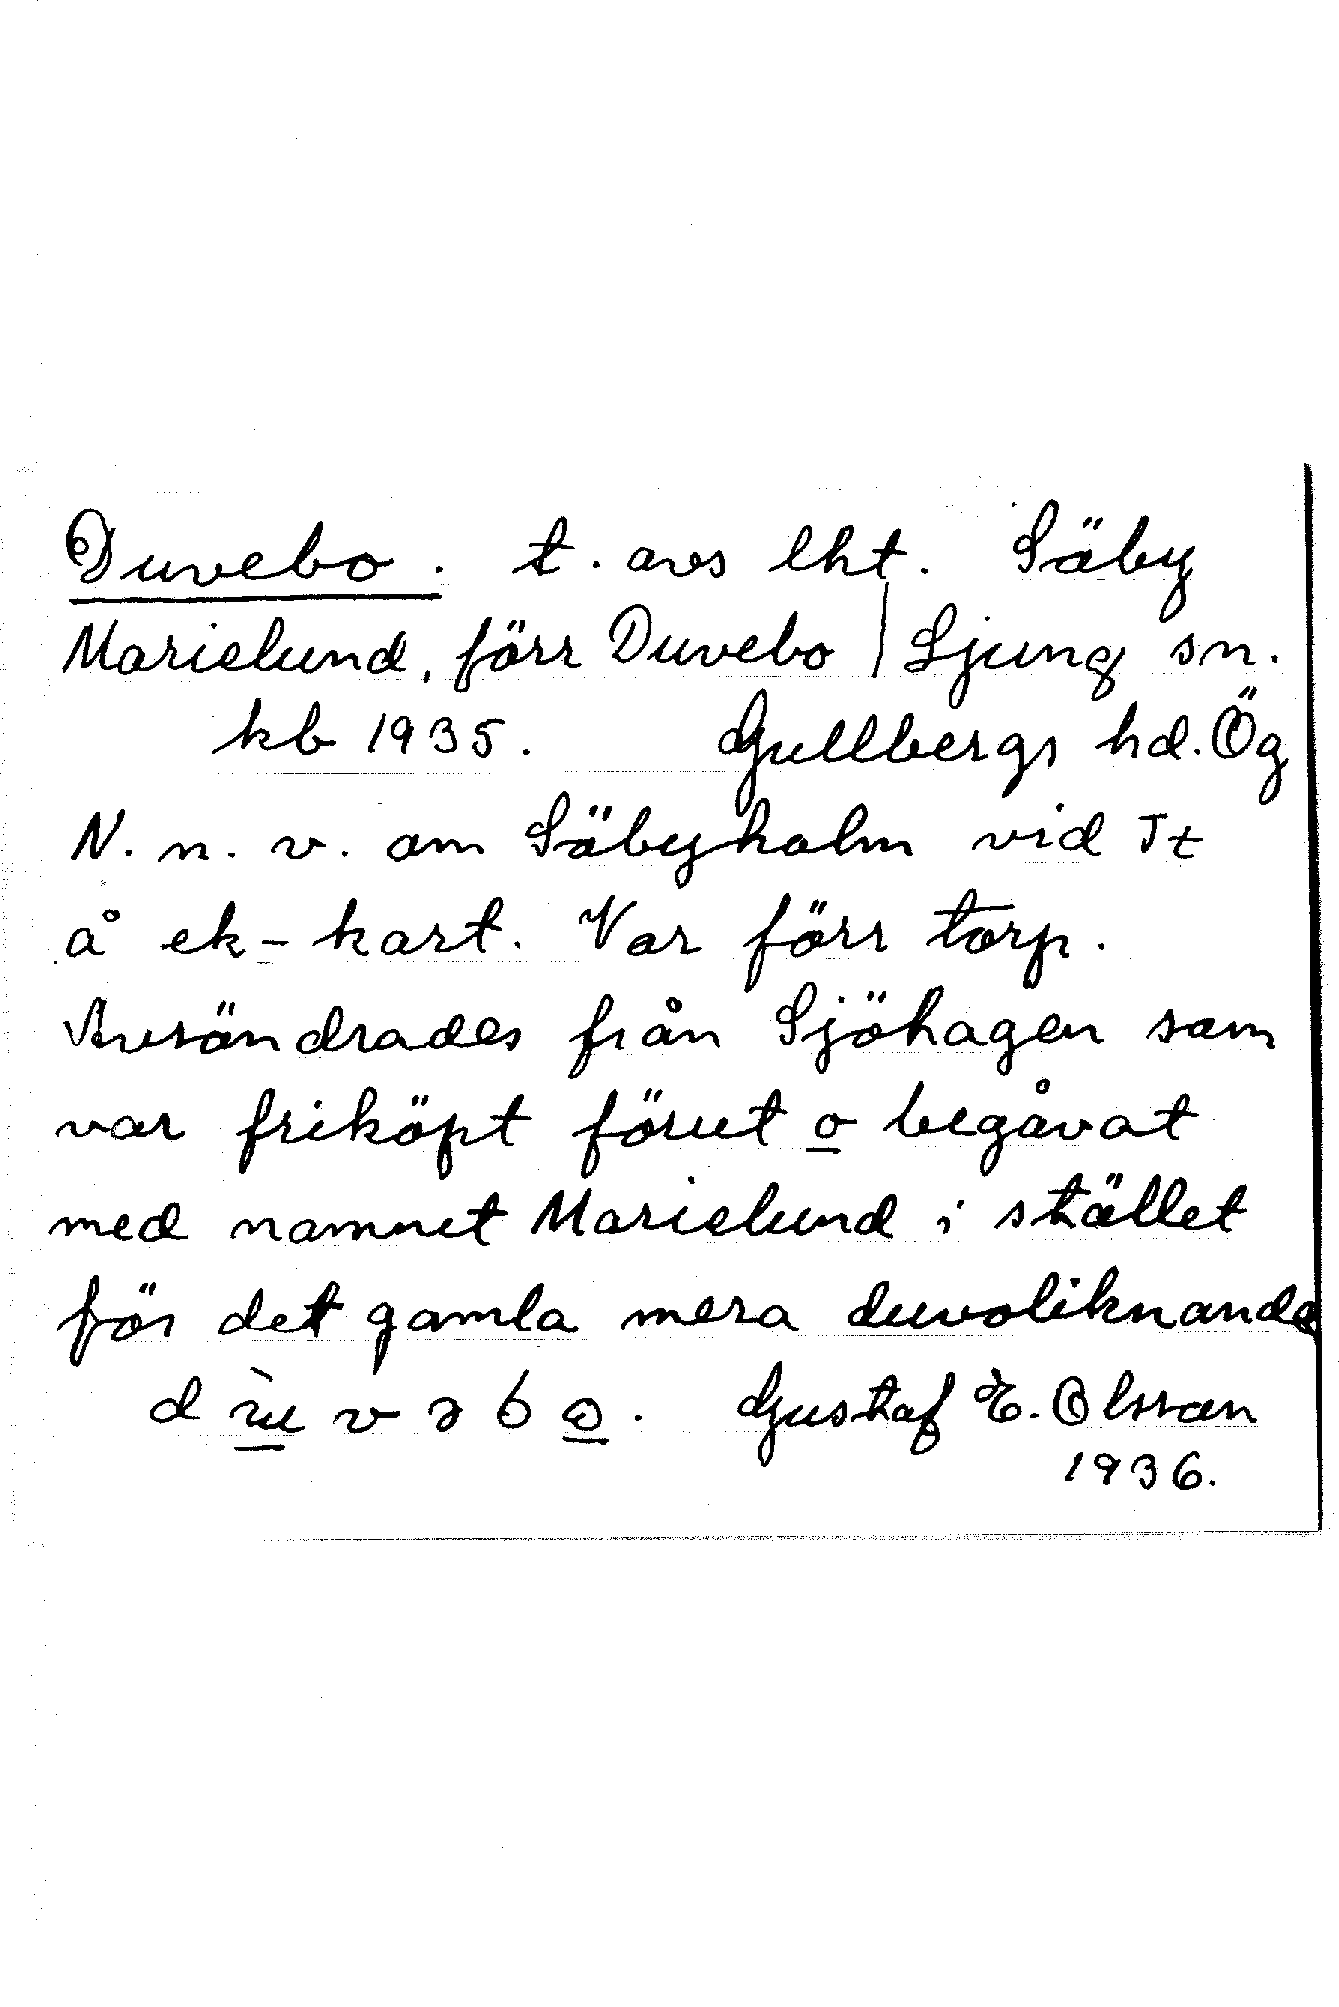 Duvebo. t. avs lht. Säby
Marielund, förr Duvebo | Ljung sn.
kb 1935. Gullbergs hd. Ög
N. n. v. om Säbyholm vid Tt
å ek-kart. Var förr torp.
Avsöndrades från Sjöhagen som
var friköpt förut o begåvat
med namnet Marielund i stället
för det gamla mera duvoliknande
d v ə b . Gustaf E. Olsson
1936.